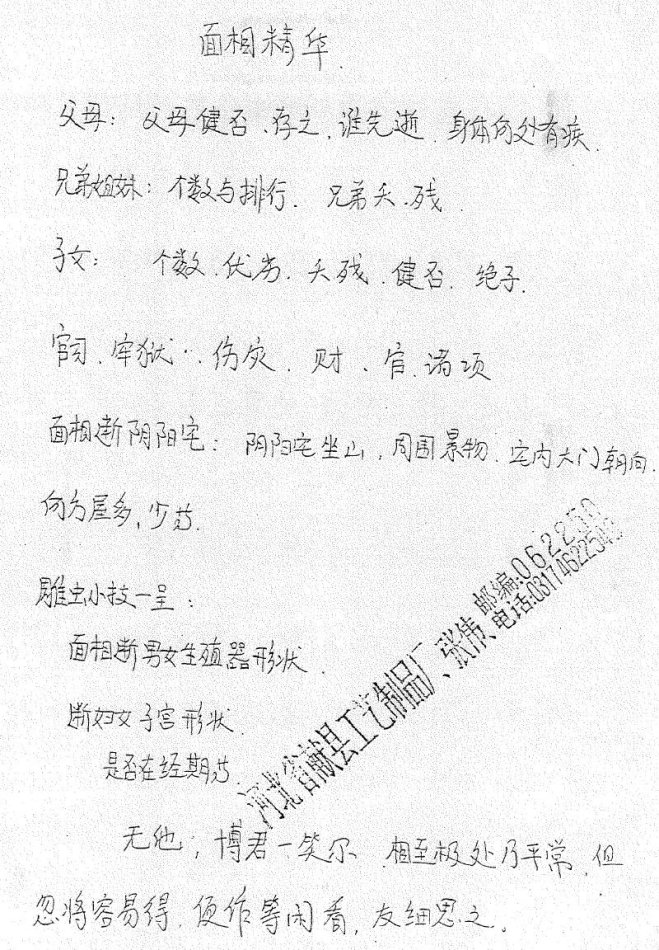 面相精华
父母：父母健否、存亡、谁先逝、身体何处有疾、
兄弟姐妹：个数与排行、兄弟夭、残、
子女：个数、优劣、夭残、健否、绝子、
官司、牢狱、伤灾、财、官、诸项
面相断阴阳宅：阴阳宅坐山，周围景物、宅内大门朝向、
何方屋多，少
雕虫小技一呈：
面相断男女生殖器形状、
断妇女子宫形状、
是否在经期
无他；博君一笑尔 相至极处乃平常，但
忽将容易得，便作等闲看，友细思之。
河北省献县工艺制品厂、张伟、邮编:062250
电话:0317462254